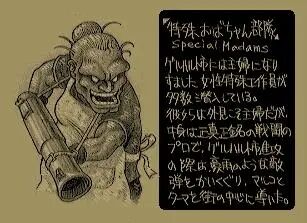 『特殊おばちゃん部隊』
Special Madams
ゲルハルト市には主婦になり
すました女性特殊工作員が
多数潜入している。
彼女らは外見こそ主婦だが、
中身は正真正銘の戦闘の
プロで、ゲルハルト市進攻
の際は豪雨のような敵
弾をかいくぐり、マルコと
ターマを街の中心に導いた。